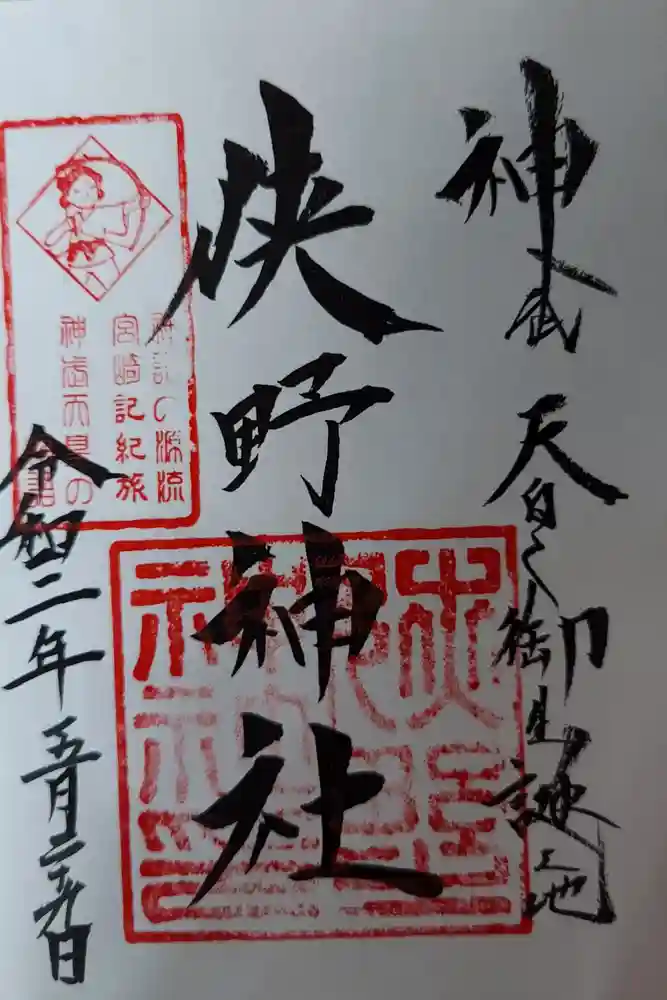 神武天皇御生誕之地
狭野神社
神話の源流
宮崎記紀旅
令和二年五月二十九日